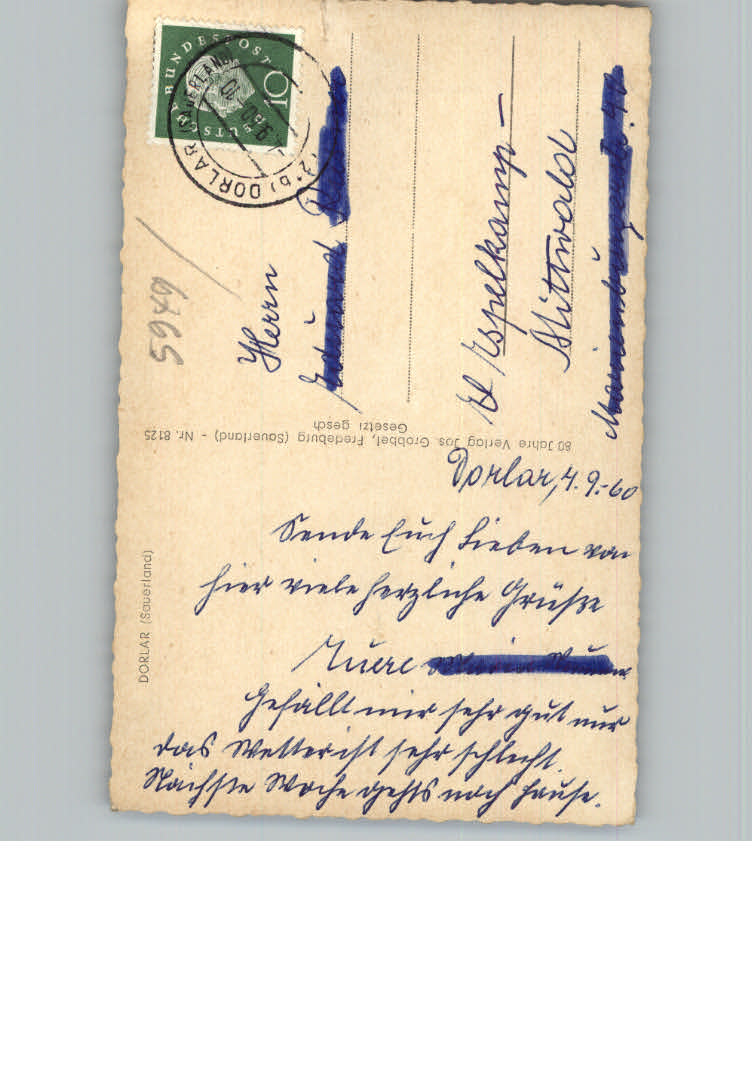 DEUTSCHE BUNDESPOST
10
DORLAR (SAUERLAND)
5949
Herrn
Espelkamp-
Mittwald
80 Jahre Verlag Jos. Grobbel, Fredeburg (Sauerland) - Nr. 8125
Gesetzl gesch
DORLAR (Sauerland)
Dorlar, 4. 9.-60
Sende Euch Lieben von
hier viele herzliche Grüße
Eure
Gefällt mir sehr gut nur
das Wetter ist sehr schlecht.
Nächste Woche gehts nach Hause.